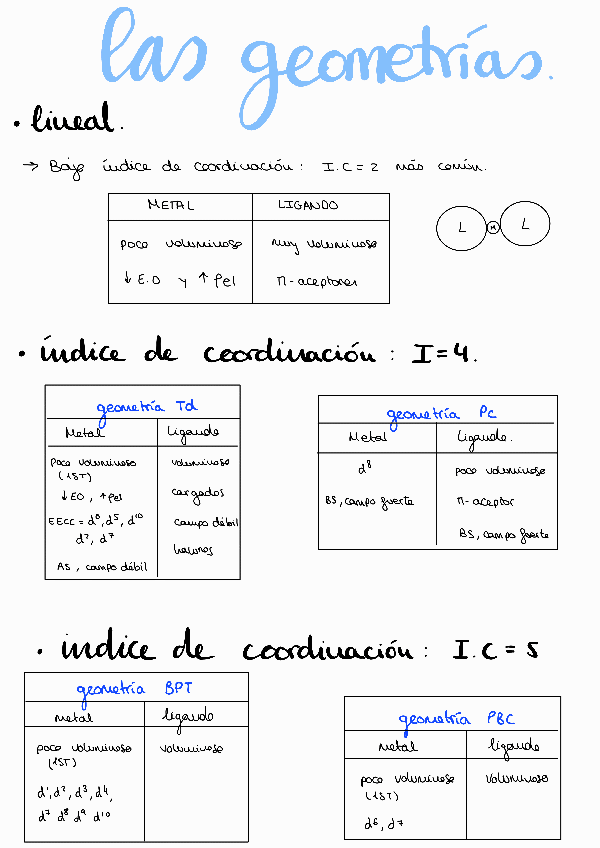 las geometrías.
• lineal.
→ Bajo índice de coordinación: I.C = 2 más común.
METAL LIGANDO
poco voluminoso muy voluminoso
↓ E.O y ↑ ρel π-aceptores
L M L
• índice de coordinación: I=4.
geometría Td
Metal Ligando
poco voluminoso voluminoso
(1ST)
↓EO, ↑ρel cargados
EECC = d⁰, d⁵, d¹⁰ campo débil
d², d⁷
haluros
AS, campo débil
geometría Pc
Metal Ligando.
d⁸ poco voluminoso
BS, campo fuerte π-aceptor
BS, campo fuerte
• indice de coordinación: I.C = 5
geometría BPT
metal ligando
poco voluminoso voluminoso
(1ST)
d¹, d², d³, d⁴,
d⁷ d⁸ d⁹ d¹⁰
geometría PBC
metal ligando
poco voluminoso voluminoso
(1ST)
d⁶, d⁷